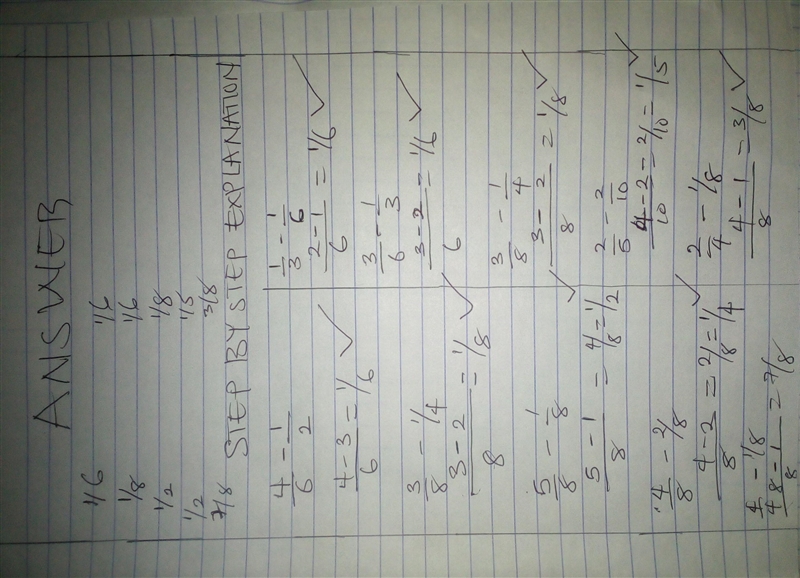 ANSWER
1/6 1/6
1/8 1/6
1/2 1/8
1/2 1/5
7/8 3/8
STEP BY STEP EXPLANATION
4/6 - 1/2
4-3/6 = 1/6 ✓
3/8 - 1/4
3-2/8 = 1/8 ✓
5/8 - 1/8
5-1/8 = 4/8 = 1/2 ✓
4/8 - 2/8
4-2/8 = 2/8 = 1/4 ✓
4/4 - 1/8
8-1/8 = 7/8
1/3 - 1/6
2-1/6 = 1/6 ✓
3/6 - 1/3
3-2/6 = 1/6 ✓
3/8 - 1/4
3-2/8 = 1/8 ✓
2/5 - 2/10
4-2/10 = 2/10 = 1/5 ✓
2/4 - 1/8
4-1/8 = 3/8 ✓